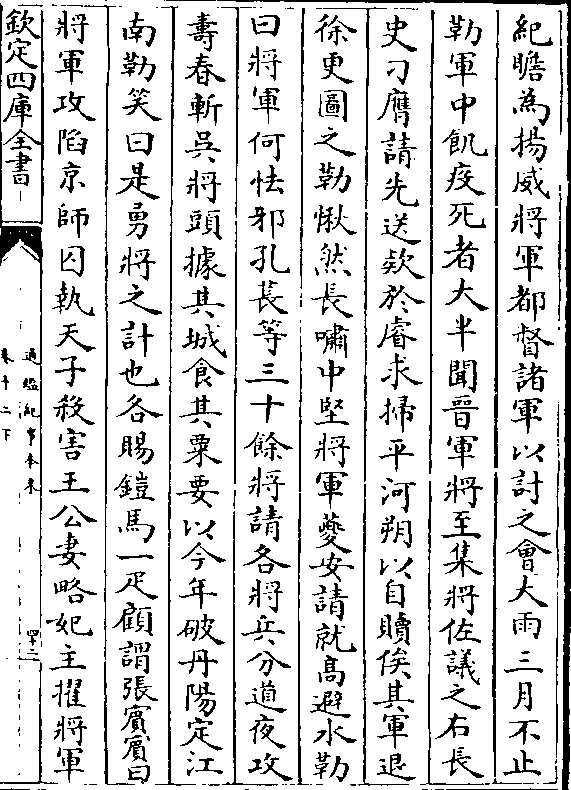 紀瞻為揚威將軍都督諸軍以討之會大雨三月不止
勒軍中飢疫死者大半聞晉軍將至集將佐議之右長
史刁膺請先送欵於睿求掃平河朔以自贖俟其軍退
徐更圖之勒愀然長嘯中堅將軍夔安請就高避水勒
曰將軍何怯邪孔萇等三十餘將請各將兵分道夜攻
壽春斬吳將頭據其城食其粟要以今年破丹陽定江
南勒笑曰是勇將之計也各賜鎧馬一疋顧謂張賓賓曰
將軍攻陷京師囚執天子殺害王公妻略妃主擢將軍
欽定四庫全書
通鑑紀事本末
卷十二下
四十二